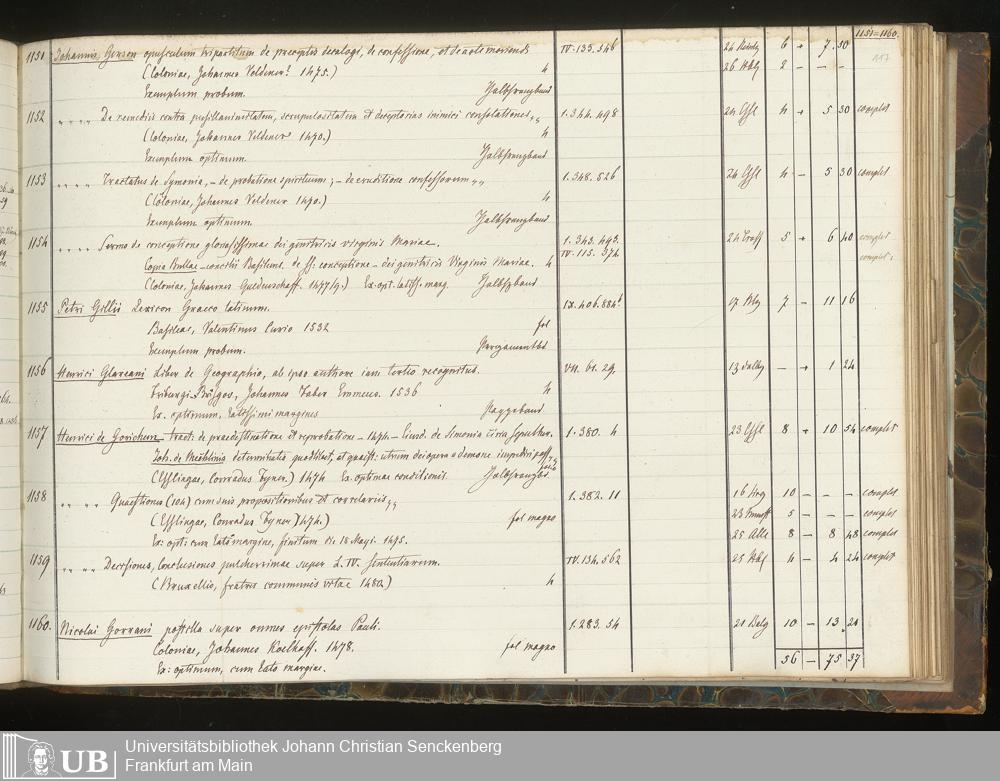 1151=1160.
117
1151 Johannis Gerson opusculum tripartitum de preceptis decalogi, de confessione, et de arte moriendi IV. 135. 546 6 + 7 50
(Coloniae, Johannes Veldener? 1475.) 4 2 – – –
Exemplum probum. Halbfranzband
1152 " " " " De remediis contra pusillanimitatem, scrupulositatem et deceptorias inimici consolationes 1. 344. 498 4 + 5 30 complet
(Coloniae, Johannes Veldener 1470.) 4
Exemplum optimum. Halbfranzband
1153 " " " " Tractatus de Symonia, – de probatione spirituum; – de eruditione confessorum 1. 348. 526 4 – 5 30 complet
(Coloniae, Johannes Veldener 1470.) 4
Exemplum optimum. Halbfranzband
1154 " " " " Sermo de conceptione gloriosissimae dei genitricis virginis Mariae. 1. 343. 493. 5 + 6 40 complet
Copia Bullae – concilii Basiliens. de conceptione – dei genitricis Virginis Mariae. 4 IV. 115. 372 complet.
(Coloniae, Johannes Guldenschaff. 1477/9.) Ex. opt. latiss. marg.
1155 Petri Gillii Lexicon Graeco latinum. IX. 406. 7 – 11 16
Basileae, Valentinus Curio 1532 fol
Exemplum probum. Pergamentbd
1156 Henrici Glareani Liber de Geographia, ab ipso authore iam tertio recognitus. VII. 61. 29. – + 1 24
Friburgi Johannes Faber Emmeus. 1536 4
Ex. optimum, latissimi margines Pappeband
1157 Henrici de Gorichem tract: de praedestinatione et reprobatione – 1474 – Eiusd. de Simonia circa 1. 380. 4 8 + 10 54 complet
(Esslingae, Conradus Fyner.) 1474 Ex. optimae conditionis. Halbfranzbd.
1158 " " " " Quaestiones (104) cum suis propositionibus et correlariis 1. 382. 11 10 – – – complet
(Esslingae, Conradus Fyner 1474.) fol magno 5 – – – complet
Ex: opt: cum lato margine, finitum die 18 Mayi. 1475. 8 – 8 48 complet
1159 " " " " Decisiones, Conclusiones pulcherrimae super L. IV. sententiarum. IV. 134. 562 4 – 4 24 complet
(Bruxellis, fratres communis vitae 1480.) 4
1160. Nicolai Gorrani postilla super omnes epistolas Pauli. 1. 283. 54 10 – 13. 21
Coloniae, Johannes Koelhoff. 1478. fol magno
Ex: optimum, cum lato margine. 56 – 75 37
UB
Universitätsbibliothek Johann Christian Senckenberg
Frankfurt am Main